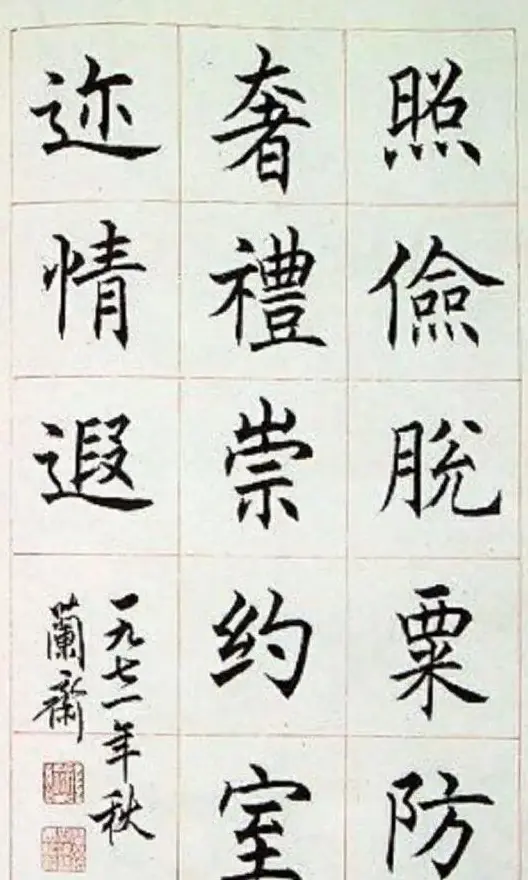 照儉脫粟防
奢禮崇约室
迩情遐
一九七一年秋
蘭齋